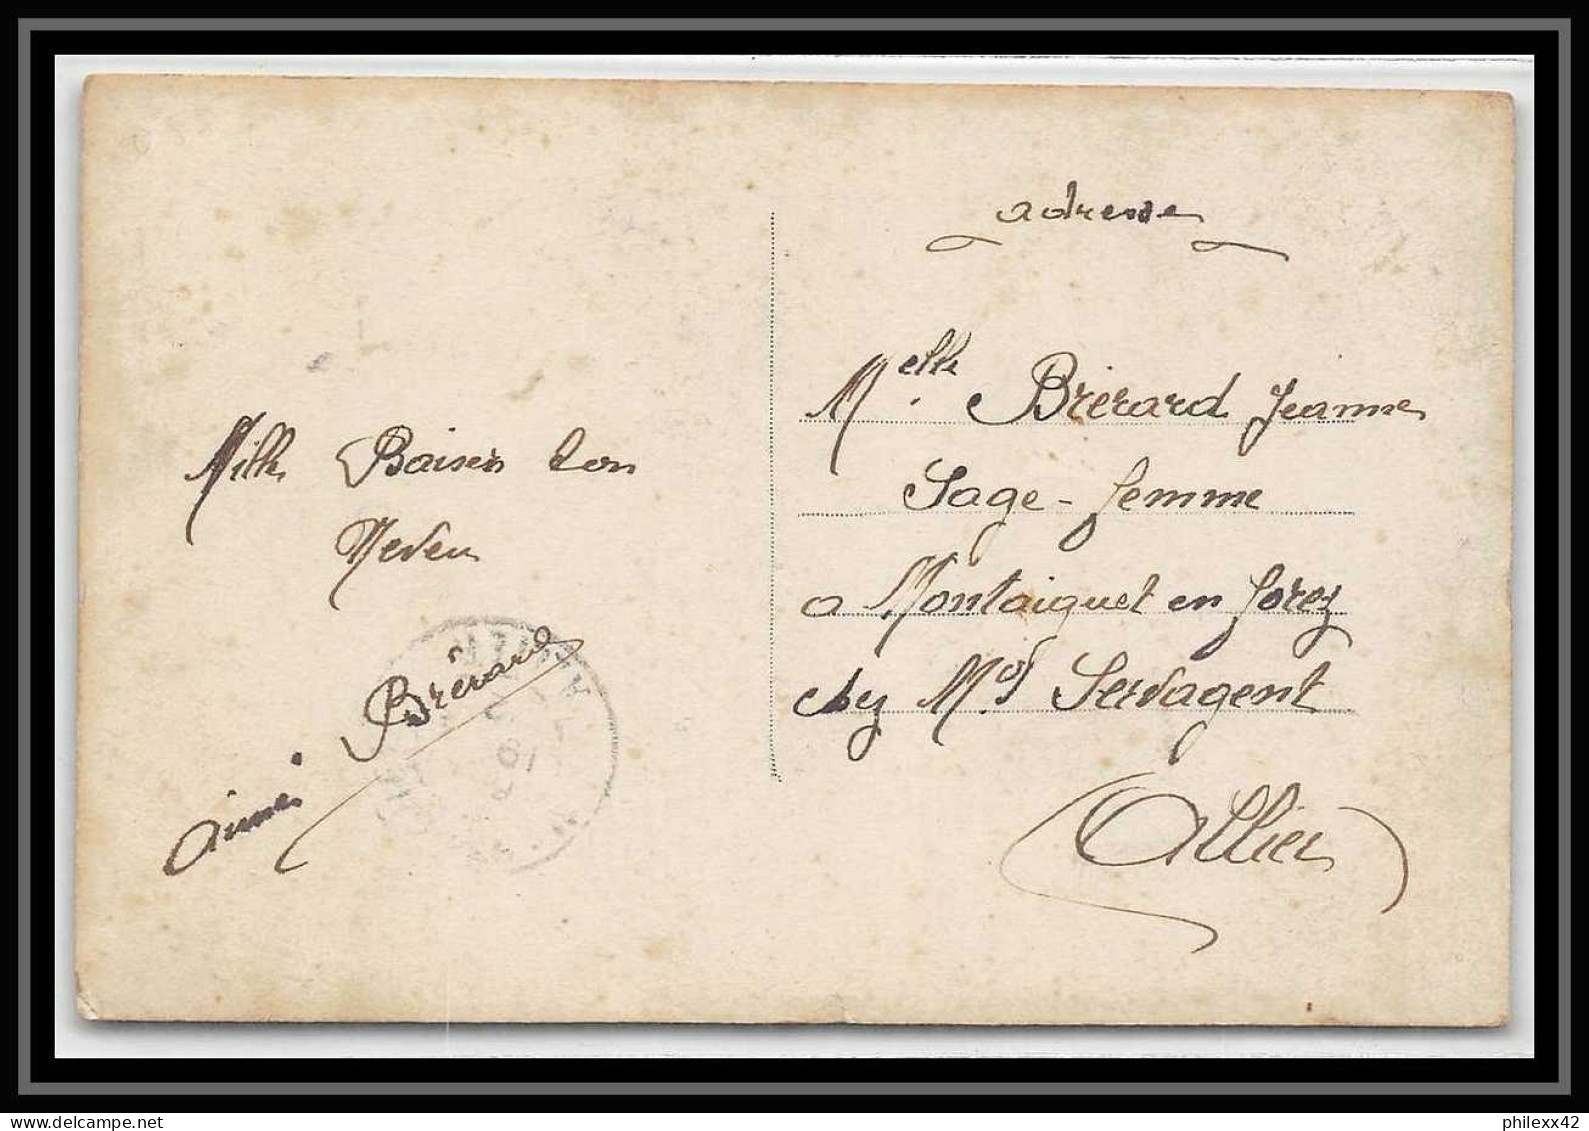 Mille Baisers ton
Neveu
Aimé Brérard
adresse
Melle Brérard Jeanne
Sage-femme
a Montaiguet en forez
chez Md Servagent
Allier
philexx42